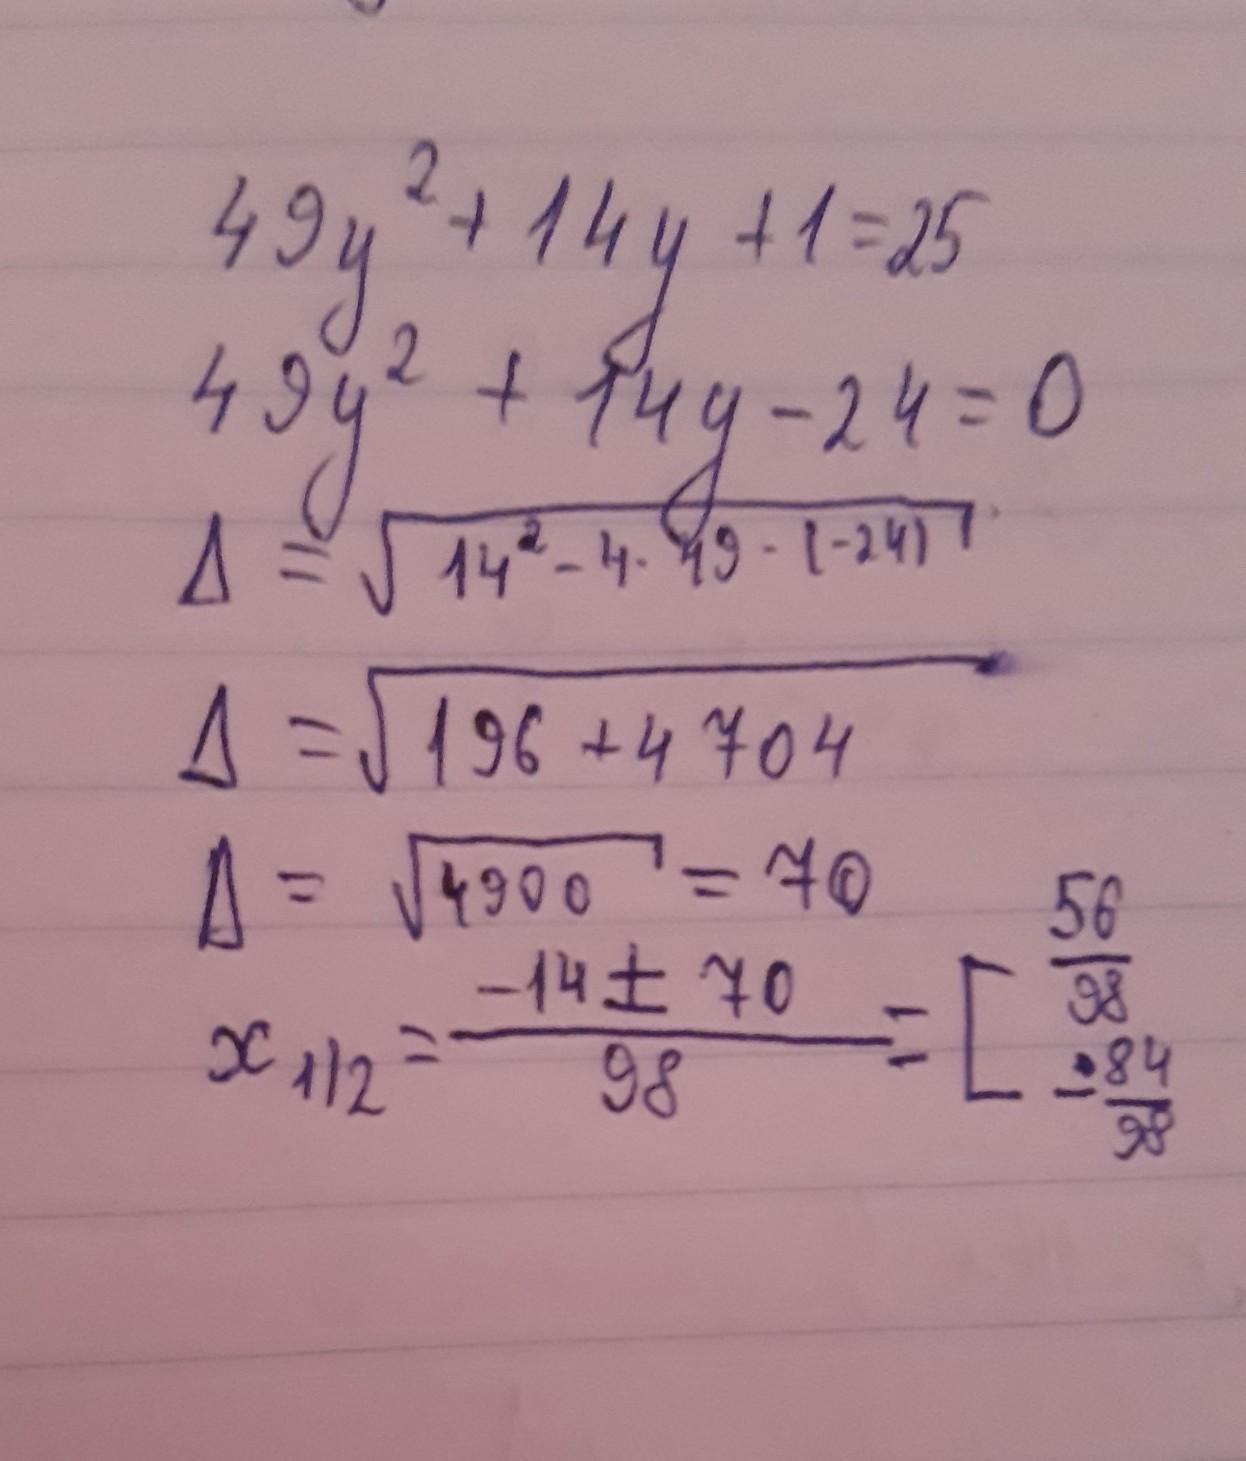 49y² + 14y + 1 = 25
49y² + 14y - 24 = 0
Δ = √(14² - 4 · 49 · (-24))
Δ = √(196 + 4704)
Δ = √4900 = 70
x₁/₂ = (-14 ± 70)/98 = [ 56/98
-84/98